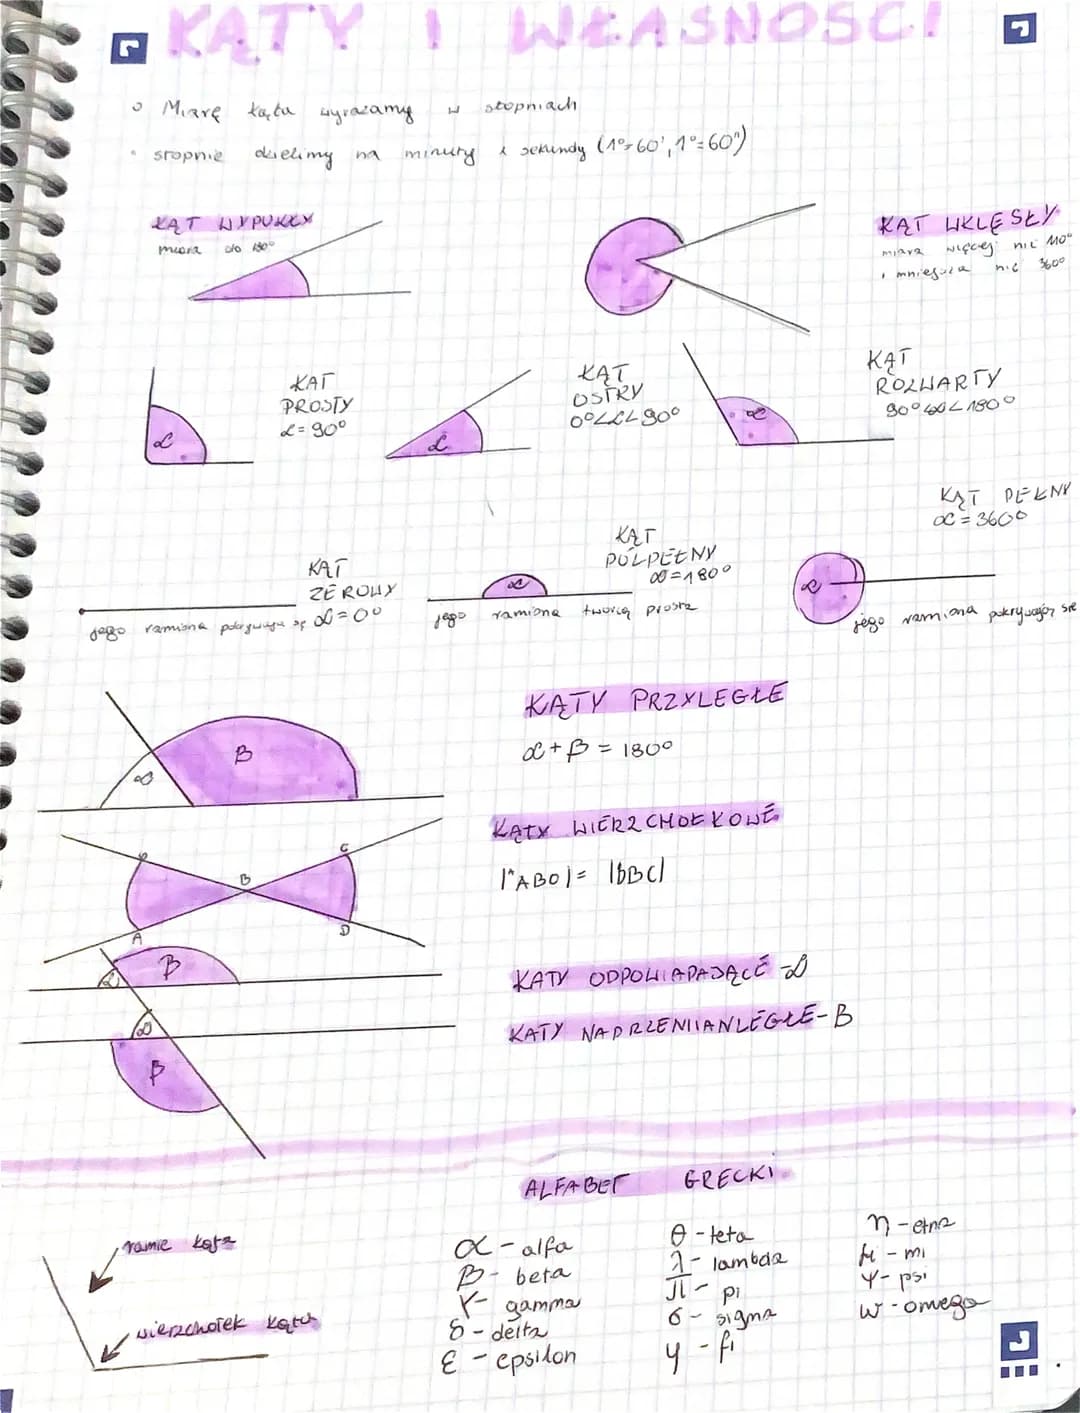 KĄTY I WŁASNOŚCI
Miarę kąta wyrażamy w stopniach
stopnie dzielimy na minuty i sekundy (1°=60', 1°=60")
KĄT WYPUKŁY
miara do 180°
KĄT WKLĘSŁY
miara więcej niż 110°
i mniejsza niż 360°
KAT
PROSTY
α = 90°
α
KĄT
OSTRY
0°<α<90°
α
KĄT
ROZWARTY
90°<α<180°
α
KĄT
ZEROWY
α = 0°
jego ramiona pokrywają się
KĄT
PÓŁPEŁNY
α = 180°
α
jego ramiona tworzą prostą
KĄT PEŁNY
α = 360°
α
jego ramiona pokrywają się
KĄTY PRZYLEGŁE
α + β = 180°
α
B
KĄTY WIERZCHOŁKOWE
C
B
A
D
KATY ODPOWIAPAJĄCE - α
KATY NADRZENIIANLEGŁE - B
α
β
α
β
ALFABET GRECKI
ramie kąta
wierzchołek kąta
α - alfa
β - beta
γ - gamma
δ - delta
ε - epsilon
θ - teta
λ - lambda
π - pi
σ - sigma
φ - fi
η - etna
μ - mi
ψ - psi
ω - omega